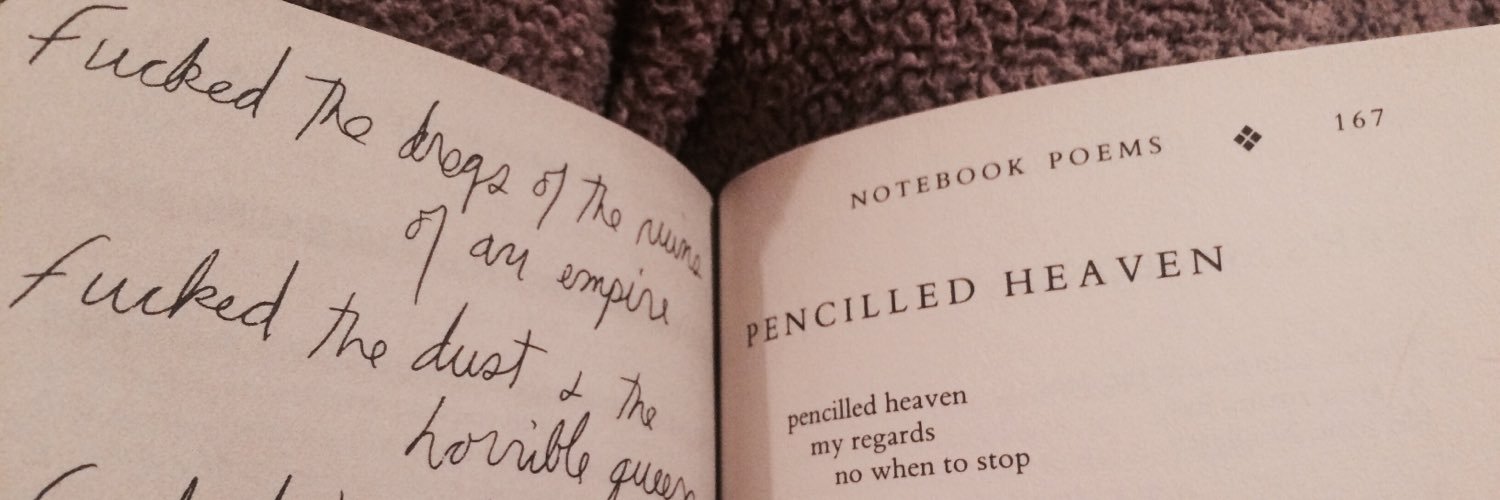 Fucked The dregs of the ruins
of an empire
Fucked the dust & the
horrible queen
NOTEBOOK POEMS ❖ 167
PENCILLED HEAVEN
pencilled heaven
my regards
no when to stop